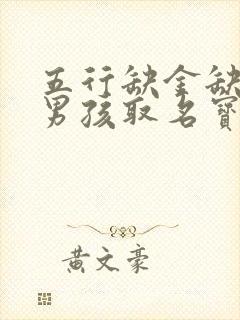 五行缺金缺
男孩取名寳
黄文豪